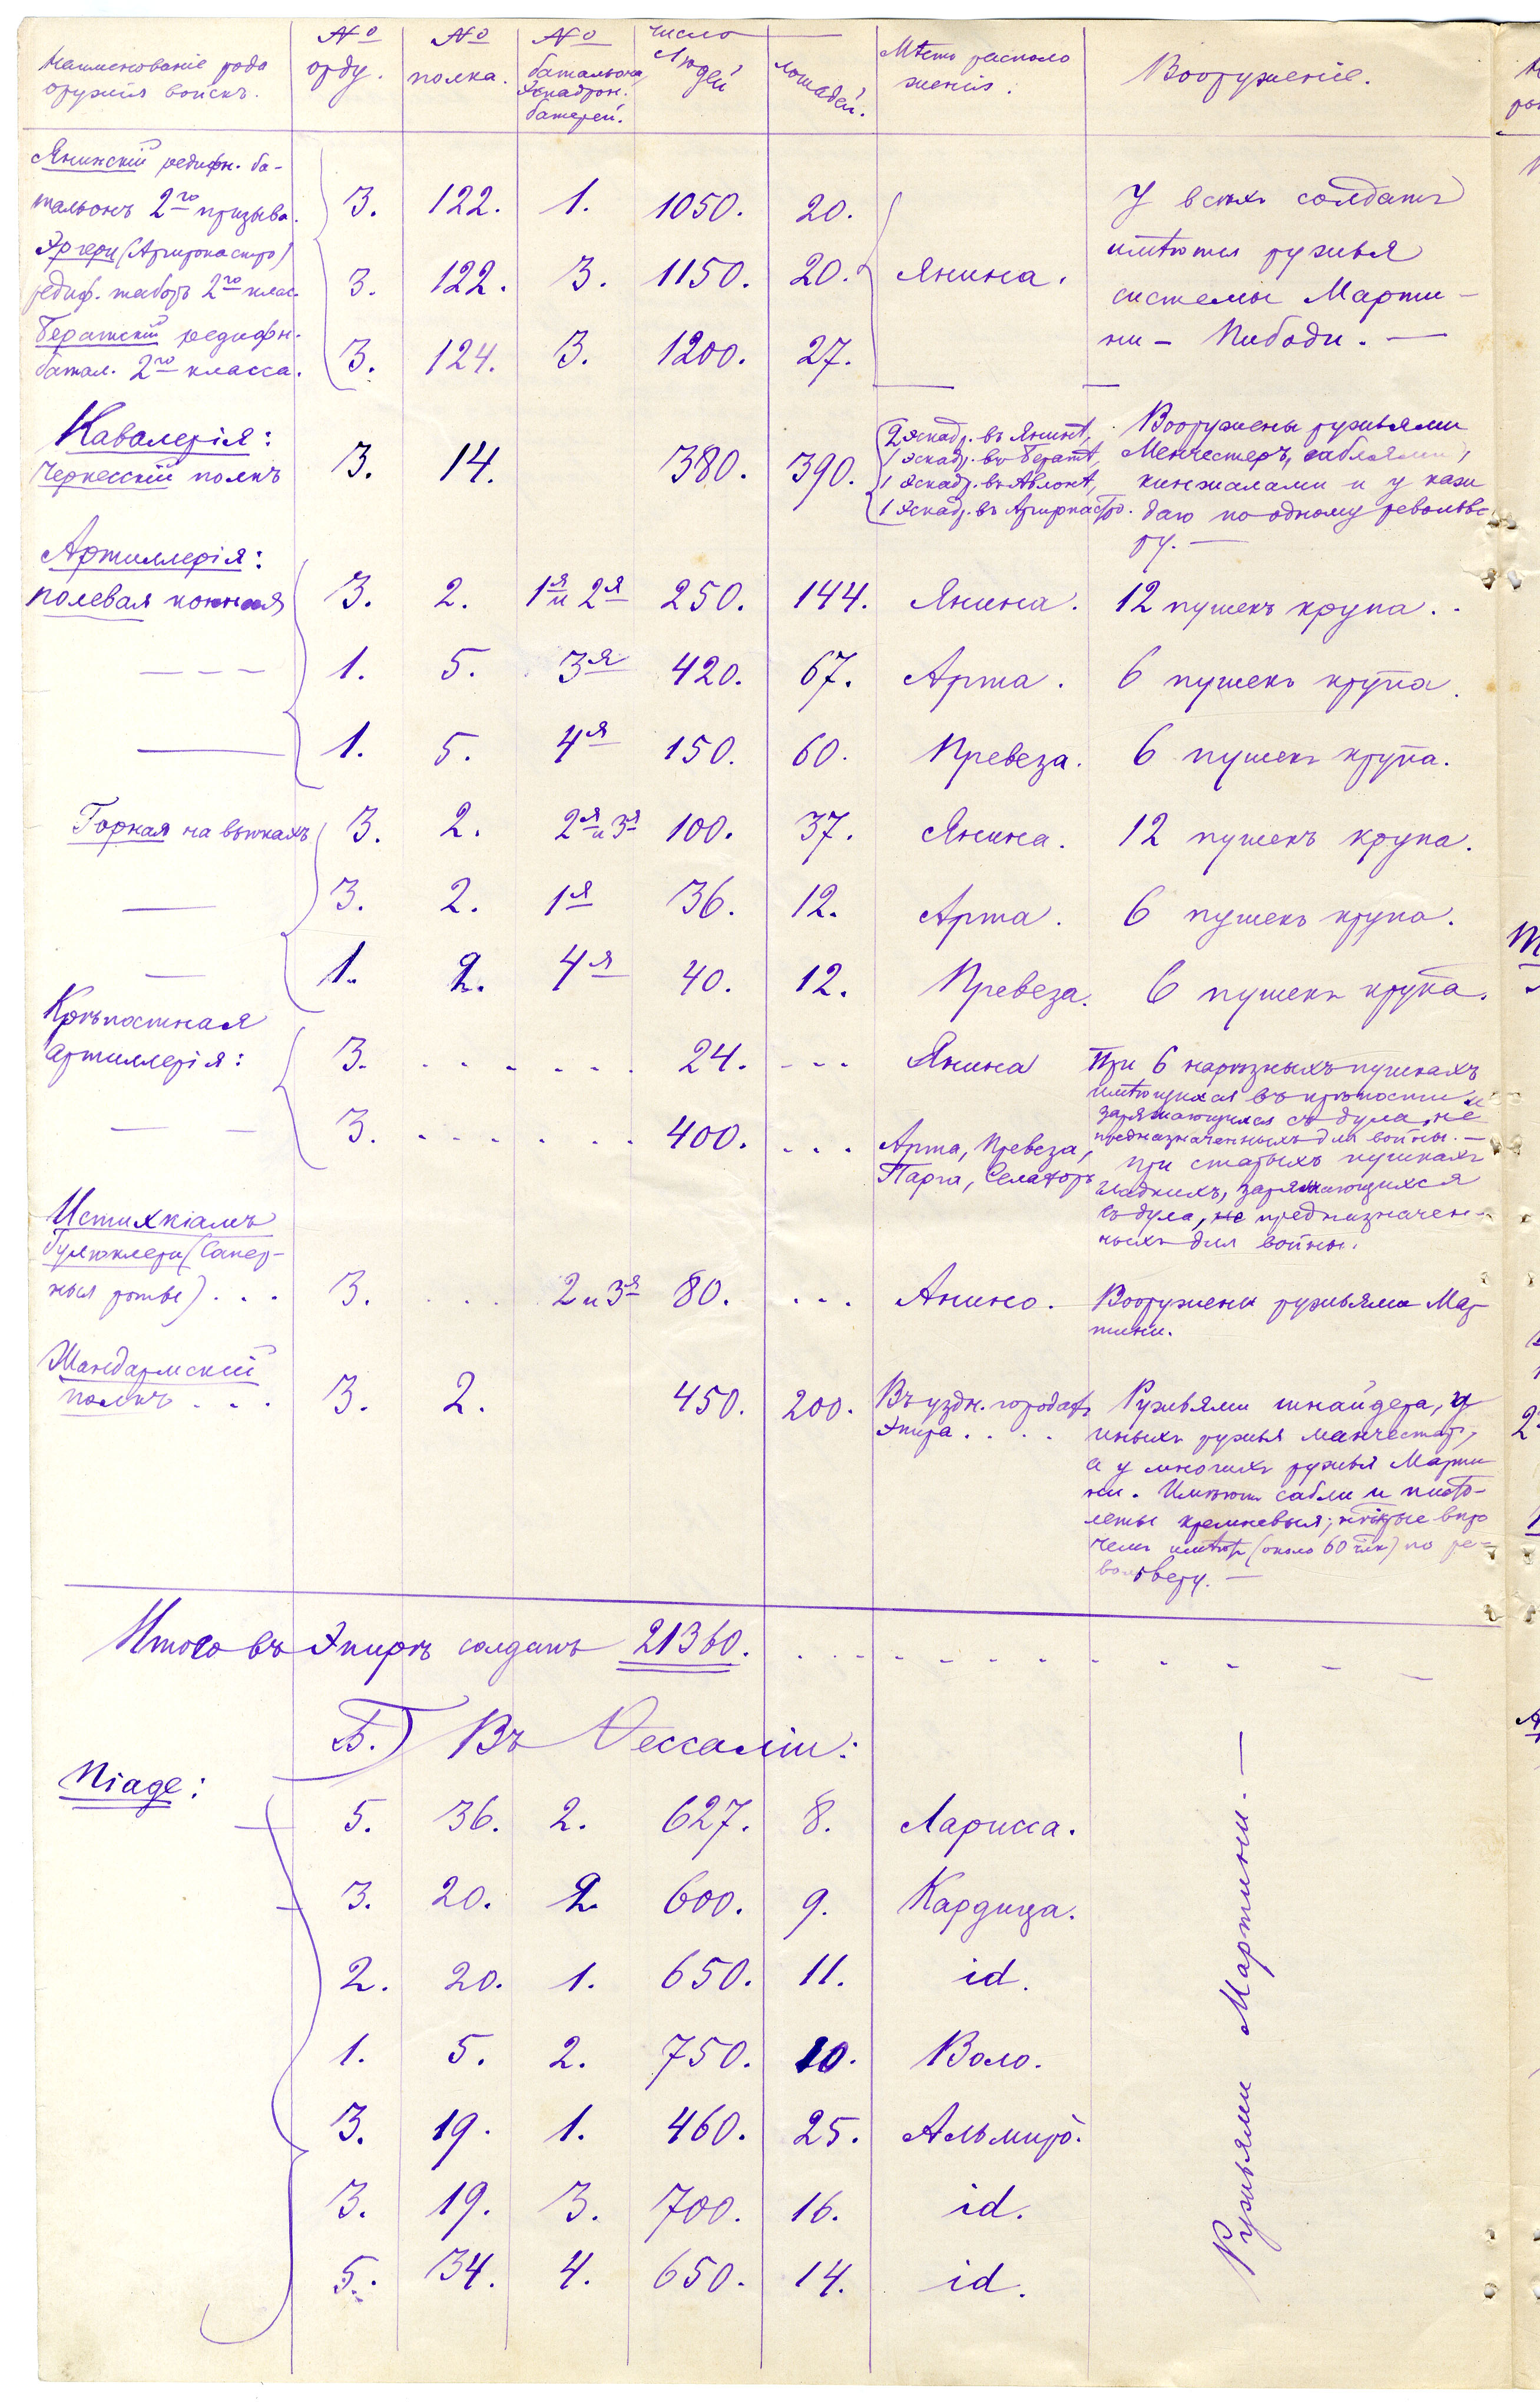 Наименованіе рода оружія войскъ. | № орду. | № полка. | № батальона, Эскадрон. батарей. | Число Людей | лошадей. | Мѣсто расположенія. | Вооруженіе.
Янинскій редифн. ба-
тальонъ 2го призыва. 3. 122. 1. 1050. 20.
Эргери (Аргирокастро)
редиф. таборъ 2го клас. 3. 122. 3. 1150. 20. Янина.
Бератскій редифн.
батал. 2го класса. 3. 124. 3. 1200. 27.
У всѣхъ солдатъ
имѣются ружья
системы Марти-
ни - Пибоди. —
Кавалерія:
Черкесскій полкъ 3. 14. 380. 390.
2 эскадр. въ Янинѣ,
1 эскадр. въ Бератѣ,
1 эскадр. въ Авлонѣ,
1 эскадр. въ Аргиркастро.
Вооружены ружьями
Менчестеръ, саблями,
кинжалами и у каж
даго по одному револьве
ру. —
Артиллерія:
полевая конная 3. 2. 1я и 2я 250. 144. Янина. 12 пушекъ крупа.
— — — 1. 5. 3я 420. 67. Арта. 6 пушекъ крупа.
— 1. 5. 4я 150. 60. Превеза. 6 пушекъ крупа.
Горная на вьюкахъ 3. 2. 2я и 3я 100. 37. Янина. 12 пушекъ крупа.
— 3. 2. 1я 36. 12. Арта. 6 пушекъ крупа.
— 1. 2. 4я 40. 12. Превеза. 6 пушекъ крупа.
Крѣпостная
артиллерія: 3. . . . . . . 24. - - - Янина
При 6 нарѣзныхъ пушкахъ
имѣющихся въ крѣпости и
заряжающихся съ дула, не
предназначенныхъ для войны. —
— — 3. . . . . . . 400. . . . Арта, Превеза,
Парга,
При старыхъ пушкахъ
гладкихъ, заряжающихся
съ дула, не предназначен-
ныхъ для войны.
Истихкіамъ
(Сапер-
ныя роты) . . . 3. . . . 2 и 3я 80. . . . Янино. Вооружены ружьями Мар-
тини.
Жандармскій
полкъ . . . 3. 2. 450. 200. Въ уздн. городахъ
Эпира . . . .
Ружьями шнайдера, у
иныхъ ружья манчестер,
а у многихъ ружья Марти
ни. Имѣютъ сабли и писто-
леты кремневыя; нѣкрые впро
чемъ имѣютъ (около 60 члк) по ре-
вольверу. —
Итого въ Эпирѣ солдатъ 21360. . . . - - - - - - - - - -
Б.) Въ Ѳессаліи:
Niage:
5. 36. 2. 627. 8. Ларисса.
3. 20. 2. 600. 9. Кардица.
2. 20. 1. 650. 11. id.
1. 5. 2. 750. 10. Воло.
3. 19. 1. 460. 25. Альмиро.
3. 19. 3. 700. 16. id.
5. 34. 4. 650. 14. id.
Ружьями Мартини. —